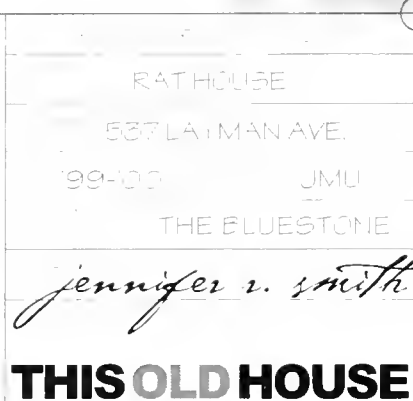 RAT HOUSE
537 LAYMAN AVE.
'99-'00 JMU
THE BLUESTONE
jennifer r. smith
THIS OLD HOUSE